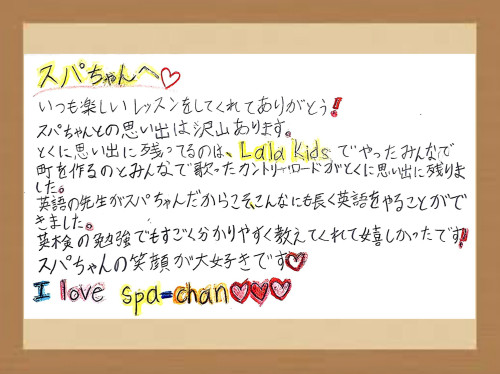 スパちゃんへ♡
いつも楽しいレッスンをしてくれてありがとう!
スパちゃんとの思い出は沢山あります。
とくに思い出に残ってるのは、Lala Kidsでやったみんなで
町を作るのとみんなで歌ったカントリーロードがとくに思い出に残りま
した。
英語の先生がスパちゃんだからこそ、こんなにも長く英語をやることがで
きました。
英検の勉強でもすごく分かりやすく教えてくれて嬉しかったです!
スパちゃんの笑顔が大好きです♡
I love spa-chan♡♡♡